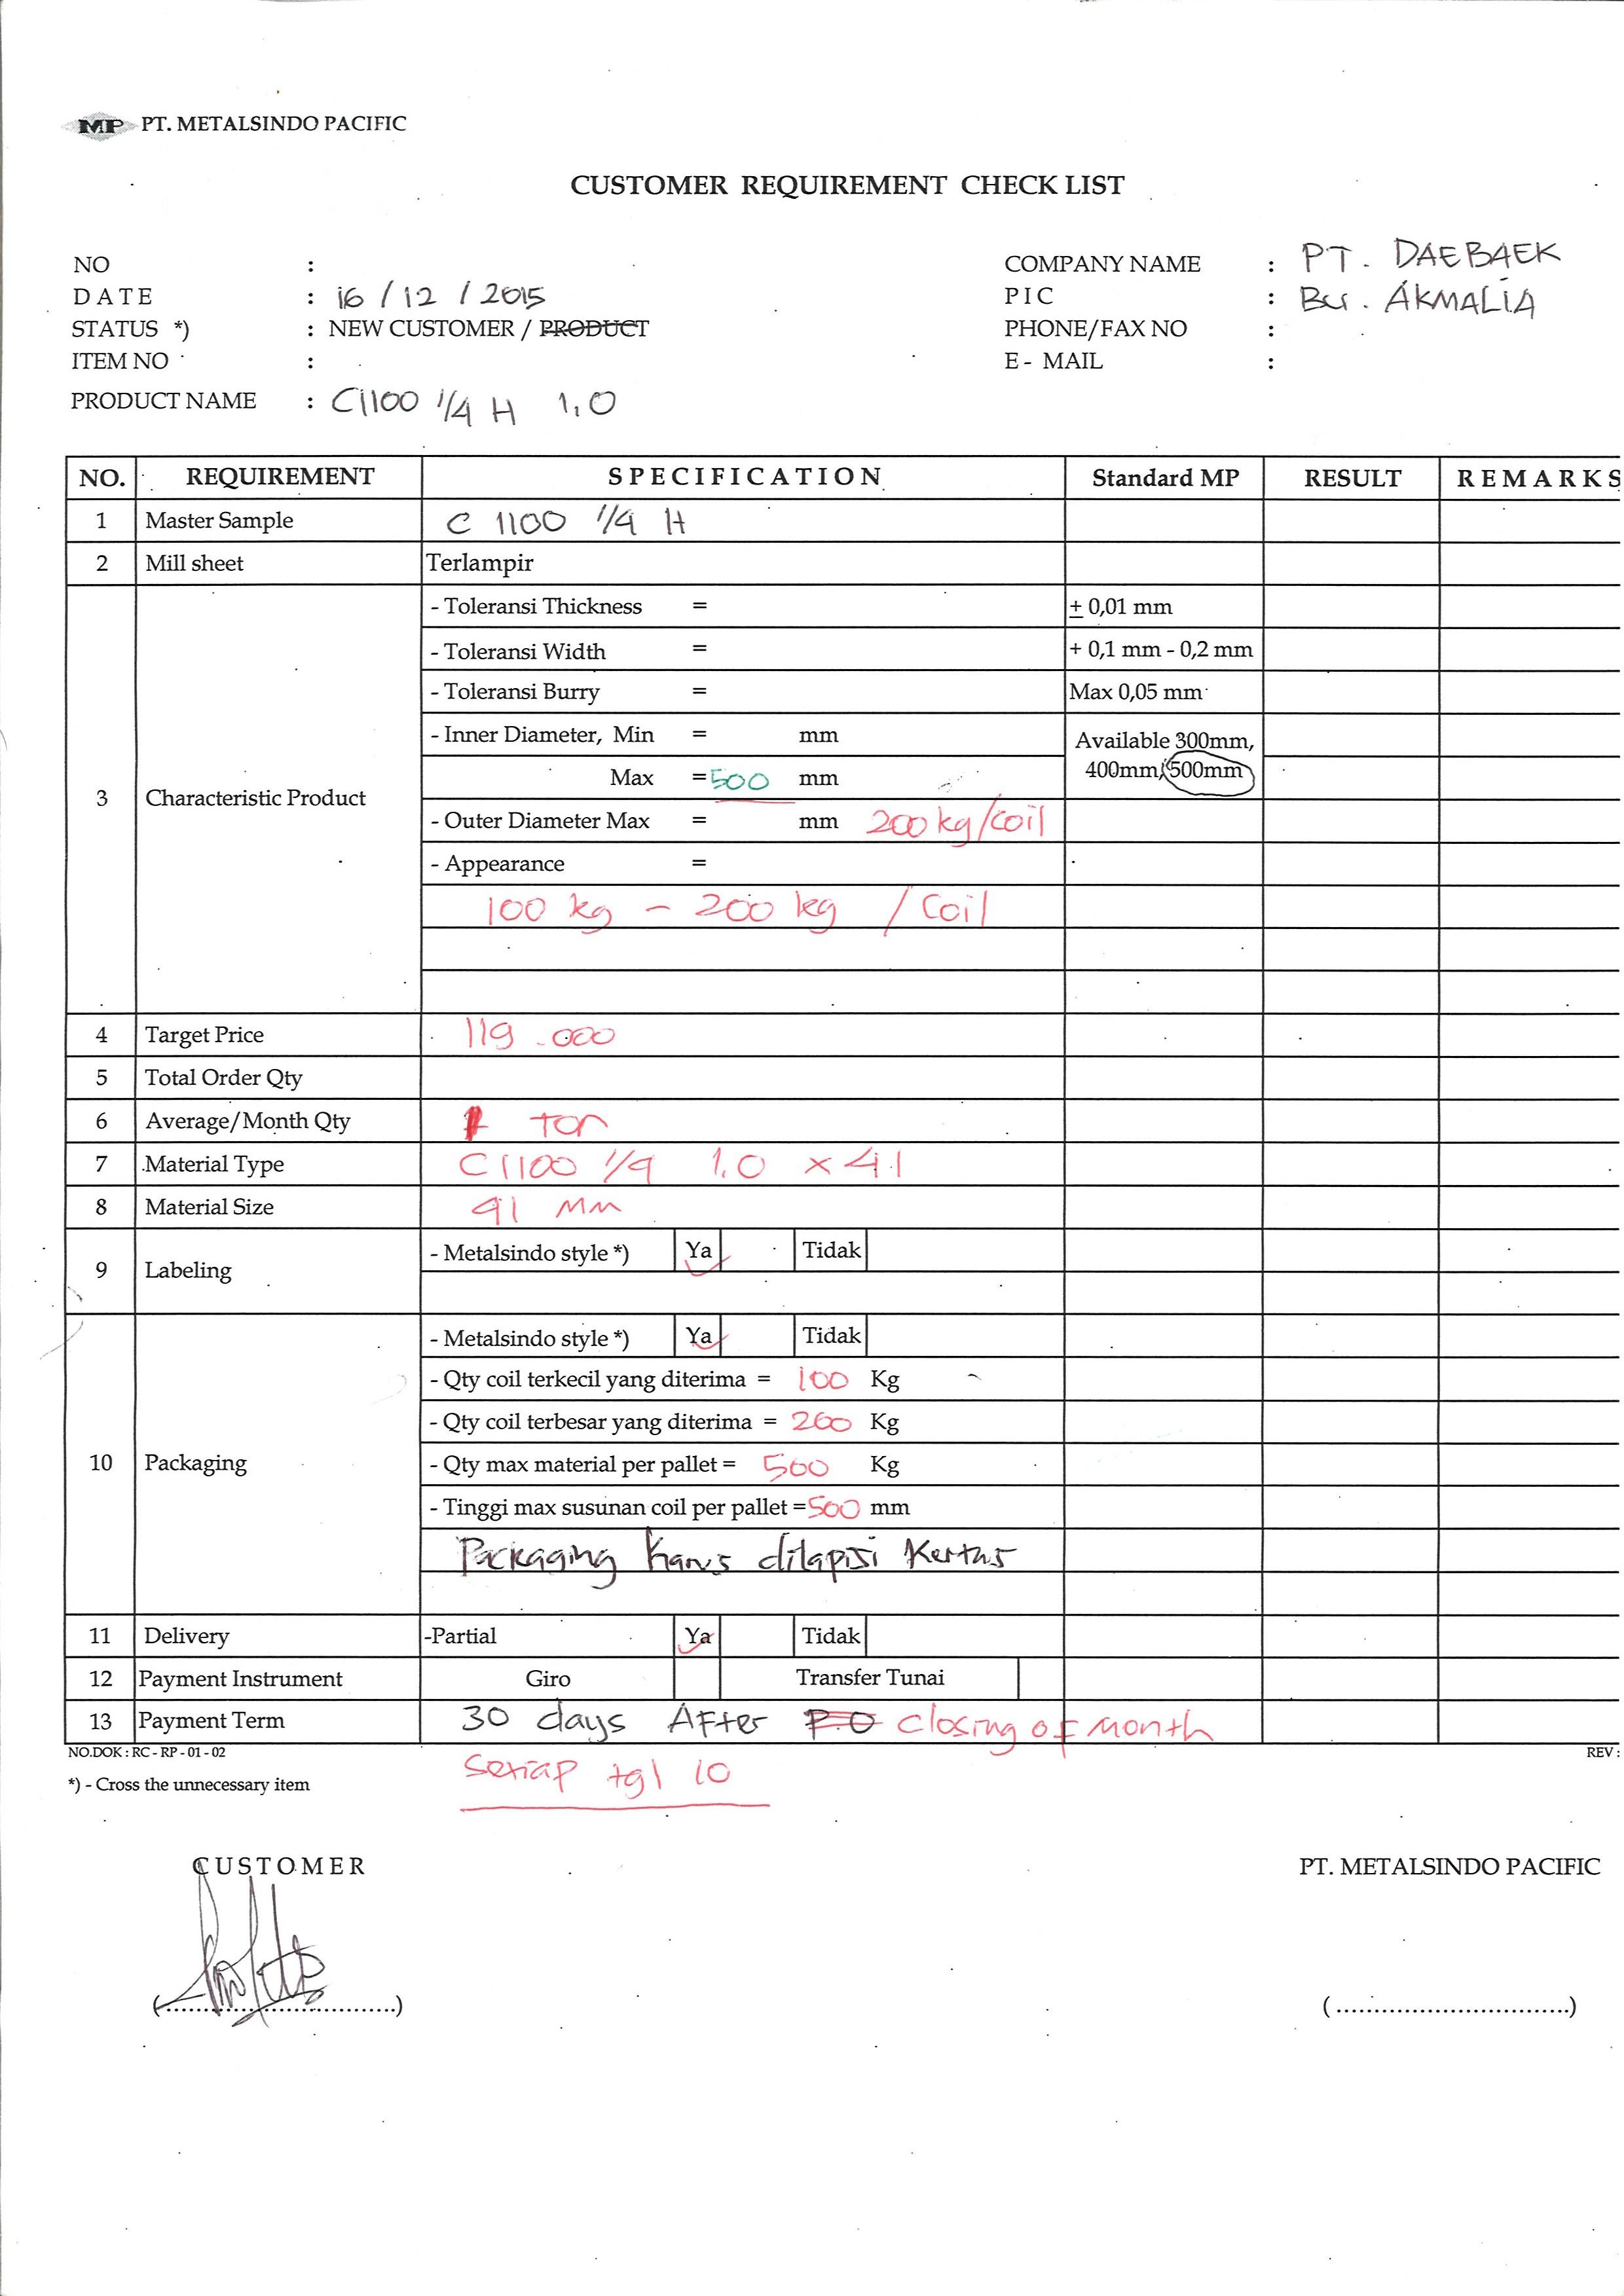 MP PT. METALSINDO PACIFIC
CUSTOMER REQUIREMENT CHECK LIST
NO :
DATE : 16 / 12 / 2015
STATUS *) : NEW CUSTOMER / PRODUCT
ITEM NO :
PRODUCT NAME : C1100 1/4 H 1,0
COMPANY NAME : PT. DAEBAEK
PIC : Bu. AKMALIA
PHONE/FAX NO :
E - MAIL :
NO. REQUIREMENT SPECIFICATION Standard MP RESULT REMARKS
1 Master Sample C 1100 1/4 H
2 Mill sheet Terlampir
3 Characteristic Product
- Toleransi Thickness = ± 0,01 mm
- Toleransi Width = + 0,1 mm - 0,2 mm
- Toleransi Burry = Max 0,05 mm
- Inner Diameter, Min = mm Available 300mm,
Max = 500 mm 400mm, 500mm
- Outer Diameter Max = mm 200 kg/coil
- Appearance =
100 kg - 200 kg / Coil
4 Target Price 119.000
5 Total Order Qty
6 Average/Month Qty 1 Ton
7 Material Type C1100 1/4 1.0 x 41
8 Material Size 41 MM
9 Labeling - Metalsindo style *) Ya Tidak
10 Packaging
- Metalsindo style *) Ya Tidak
- Qty coil terkecil yang diterima = 100 Kg
- Qty coil terbesar yang diterima = 200 Kg
- Qty max material per pallet = 500 Kg
- Tinggi max susunan coil per pallet = 500 mm
Packaging harus dilapisi Kertas
11 Delivery -Partial Ya Tidak
12 Payment Instrument Giro Transfer Tunai
13 Payment Term 30 days AFter P.O closing of month
setiap tgl 10
NO.DOK : RC - RP - 01 - 02 REV :
*) - Cross the unnecessary item
CUSTOMER PT. METALSINDO PACIFIC
(..............................) (..............................)